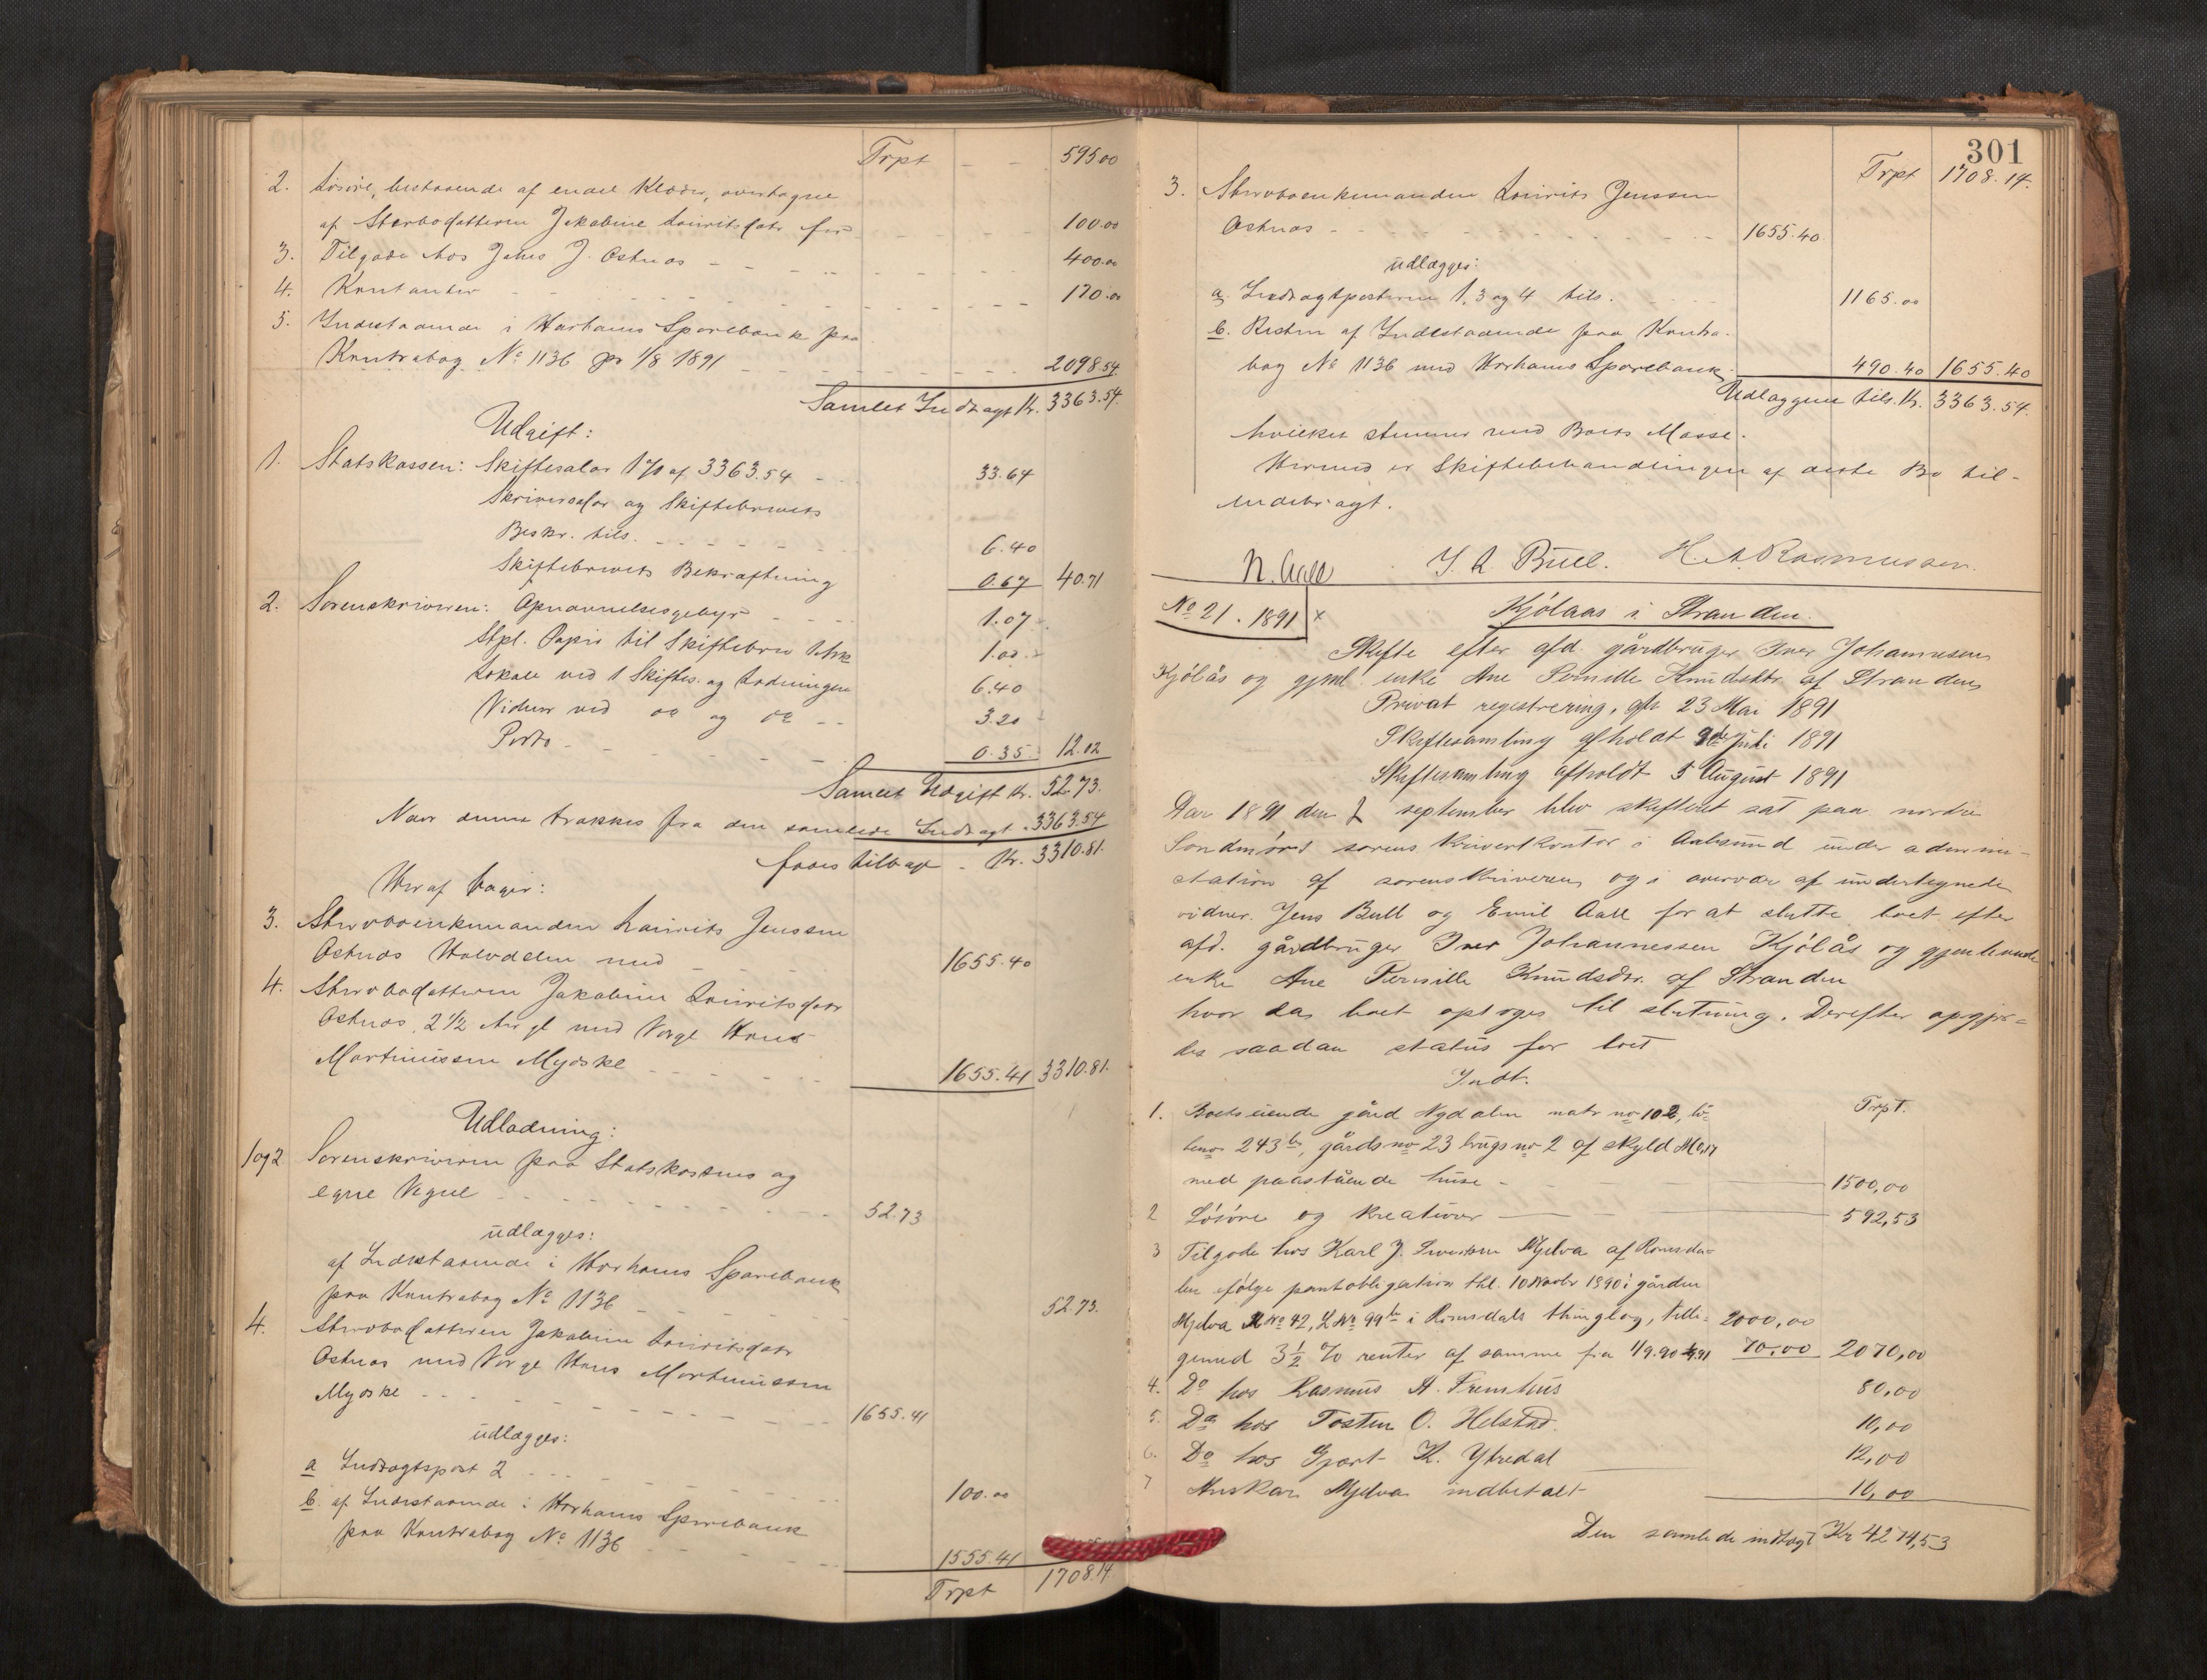 Trpt - - 595 00
2. Løsøre, bestaaende af endel Klæder, overtagne
af Sterbodatteren Jakobine Lauritsdatr for - - - 100.00
3. Tilgode hos Jens J. Østnæs - - - 400.00
4. Kontanter - - - 170.00
5. Indestaaende i Harhams Sparebank paa
Kontrabog No 1136 pr 1/8 1891 - - - 2098.54
Samlet Indtægt Kr. 3363.54.
Udgift:
1. Statskassen: Skiftesalær 1% af 3363.54 - 33.64
Skriversalær og Skiftebrevets
Beskr. tils. - - - 6.40
Skiftebrevets Bekræftning 0.67 40.71
2. Sorenskriveren: Opnævnelsesgebyr - - - 1.07
Stpl. Papir til Skiftebrev 1 Ark 1.00
Lokale ved 1 Skiftes. og Lodningen 6.40
Vidner ved do og do - - 3.20
Porto - - - 0.35 12.02
Samlet Udgift Kr. 52.73.
Naar denne trækkes fra den samlede Indtægt - 3363.54
faaes tilbage - Kr. 3310.81.
Heraf tager:
3. Sterboenkemanden Laurits Jenssen
Østnæs Halvdelen med - - - 1655.40
4. Sterbodatteren Jakobine Lauritsdatr
Østnæs, 2 1/2 Aar gl med Verge Hans
Martinussen Myoske - - - 1655.41 3310.81.
Udlodning:
1 og 2 Sorenskriveren paa Statskassens og
egne Vegne - - - 52.73
udlægges:
af Indestaaende i Harhams Sparebank
paa Kontrabog No 1136 - - - 52.73.
4. Sterbodatteren Jakobine Lauritsdatr
Østnæs med Verge Hans Martinussen
Myoske - - - 1655.41
udlægges:
a Indtægtspost 2 - - - 100.00
b. af Indestaaende i Harhams Sparebank
paa Kontrabog No 1136 - - - 1555.41
Trpt 1708.14
301
Trpt 1708.14.
3. Sterboenkemanden Laurits Jenssen
Østnæs - - - 1655.40
udlægges:
a. Indtægtposterne 1, 3 og 4 tils. 1165.00
b. Resten af Indestaaende paa Kontra-
bog No 1136 med Harhams Sparebank 490.40 1655.40
Udlæggene tils. Kr. 3363.54.
hvilket stemmer med Boets Masse.
Hermed er Skiftebehandlingen af dette Bo til-
endebragt.
N. Aall J. A. Bull. H. A. Rasmussen.
No 21. 1891 x Kjölaas i Stranden.
Skifte efter afd. gårdbruger Iver Johannesen
Kjölås og gjenl. enke Ane Pernille Knudsdtr. af Stranden
Privat registrering, afh 23 Mai 1891
Skiftesamling afholdt 9de juli 1891
Skiftesamling afholdt 5 August 1891
Aar 1891 den september blev skifteret sat paa nordre
Søndmørs sorenskriverkontor i Aalesund under admini-
stration af sorenskriveren og i overvær af undertegnede
vidner Jens Bull og Emil Aall for at slutte boet efter
afd. gårdbruger Iver Johannessen Kjölås og gjenlevende
enke Ane Pernille Knudsdtr. af Stranden
hvor da boet optoges til slutning. Derefter opgjor-
des saadan status for boet
Indt.
1. Boets eiende gård Nydalen matr no 102, lö-
beno 243 b, gårdsno 23 brugsno 2 af skyld M 0,17 Trpt.
med paastående huse - 1500,00
2 Lösöre og kreaturer - 592,53
3 Tilgode hos Karl J. Iversen Mjelva af Romsda-
len ifølge pantobligation thl. 10 Novbr 1890 i gården
Mjelva MNo 42, LNo 99 b i Romsdals thinglag, tilli- 2000,00
gemed 3 1/2 % renter af samme fra 1/9.90 70,00 2070,00
4. Do hos Rasmus A. Fremhus 80,00
5. Do hos Tosten O. Helstad. 10,00
6. Do hos Gjært K. Ytredal 12,00
7 Anskar Mjelva indbetalt 10,00
Den samlede indtægt Kr 4274,53